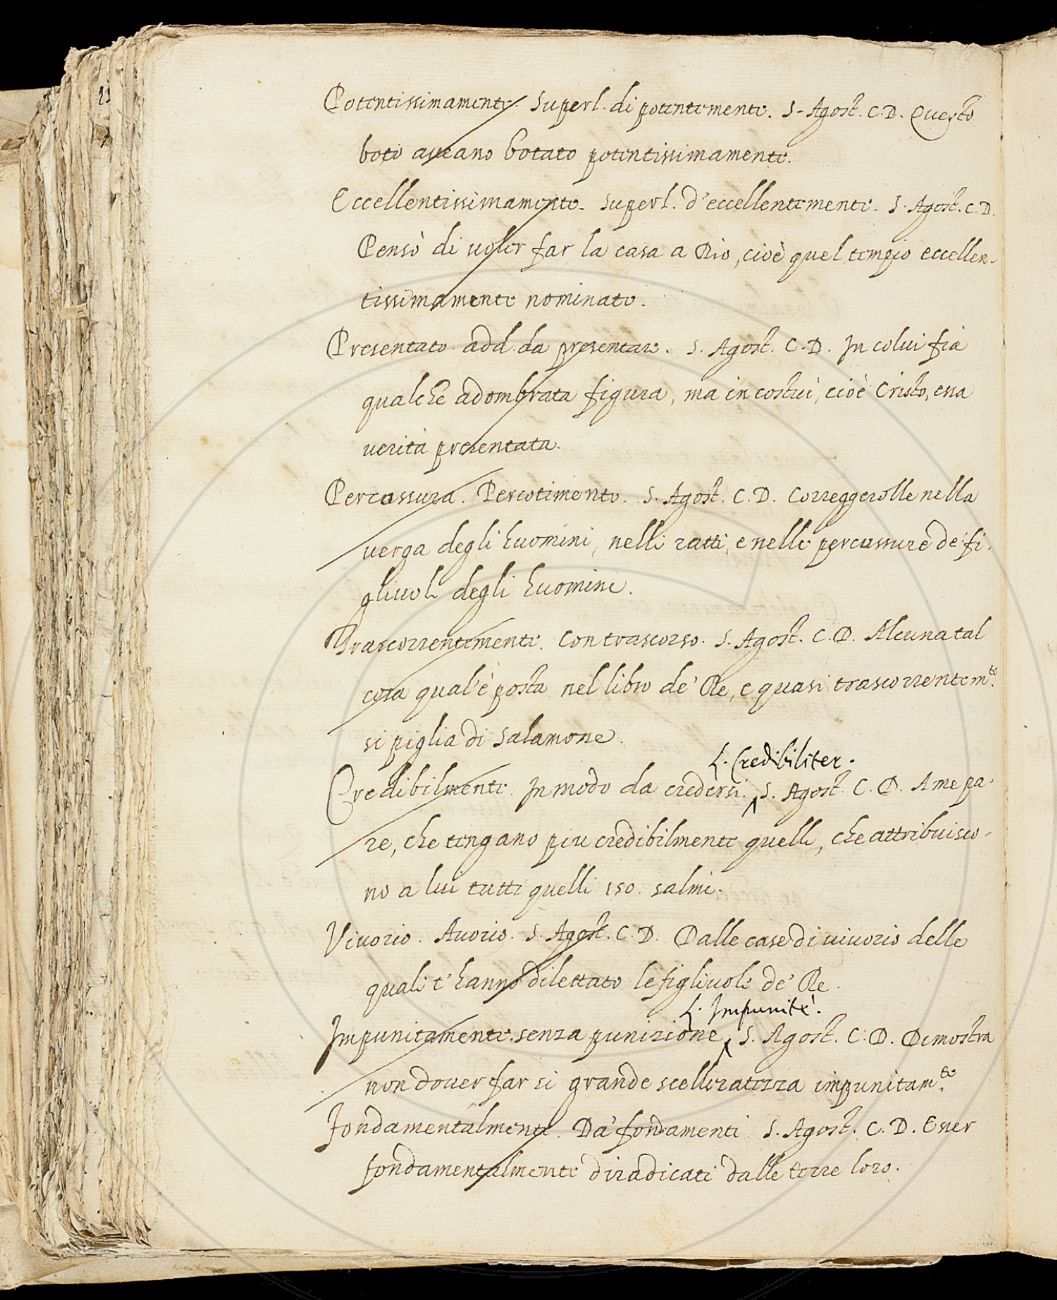 Potentissimamente Superl. di potentemente. S. Agost. C. D. Questo
boto aveano botato potentissimamente.
Eccellentissimamente. Superl. d'eccellentemente. S. Agost. C. D.
Pensò di voler far la casa a Dio, cioè quel tempio eccellen-
tissimamente nominato.
Presentato add. da presentare. S. Agost. C. D. In colui fia
qualche adombrata figura, ma in costui, cioè Cristo, essa
verità presentata.
Percussura. Percotimento. S. Agost. C. D. Correggerolle nella
verga degli huomini, nelli ratti, e nelle percussure de' fi-
gliuoli degli huomini.
Trascorrentemente. Con trascorso. S. Agost. C. D. Alcuna tal
cosa qual'è posta nel libro de' Re, e quasi trascorrentem.te
si piglia di Salamone.
L. Credibiliter.
Credibilmente. In modo da credersi. S. Agost. C. D. A me pa-
re, che tengano piu credibilmente quelli, che attribuisco-
no a lui tutti quelli 150. salmi.
Vivorio. Avorio. S. Agost. C. D. Dalle case di vivorio delle
quali t'hanno dilettato le figliuole de' Re.
L. Impunitè.
Impunitamente. senza punizione S. Agost. C. D. Dimostra
non dover far si grande scelleratezza impunitam.te
Fondamentalmente. Da' fondamenti S. Agost. C. D. Esser
fondamentalmente diradicati dalle terre loro.